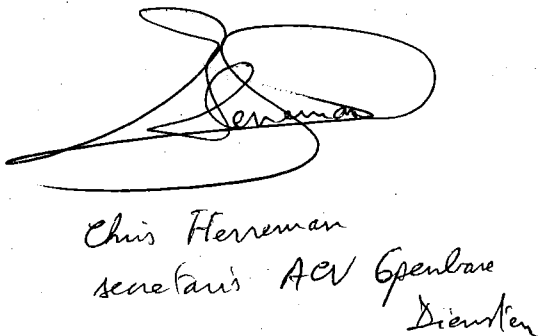 Herreman
Chris Herreman
secretaris ACV Openbare
Diensten